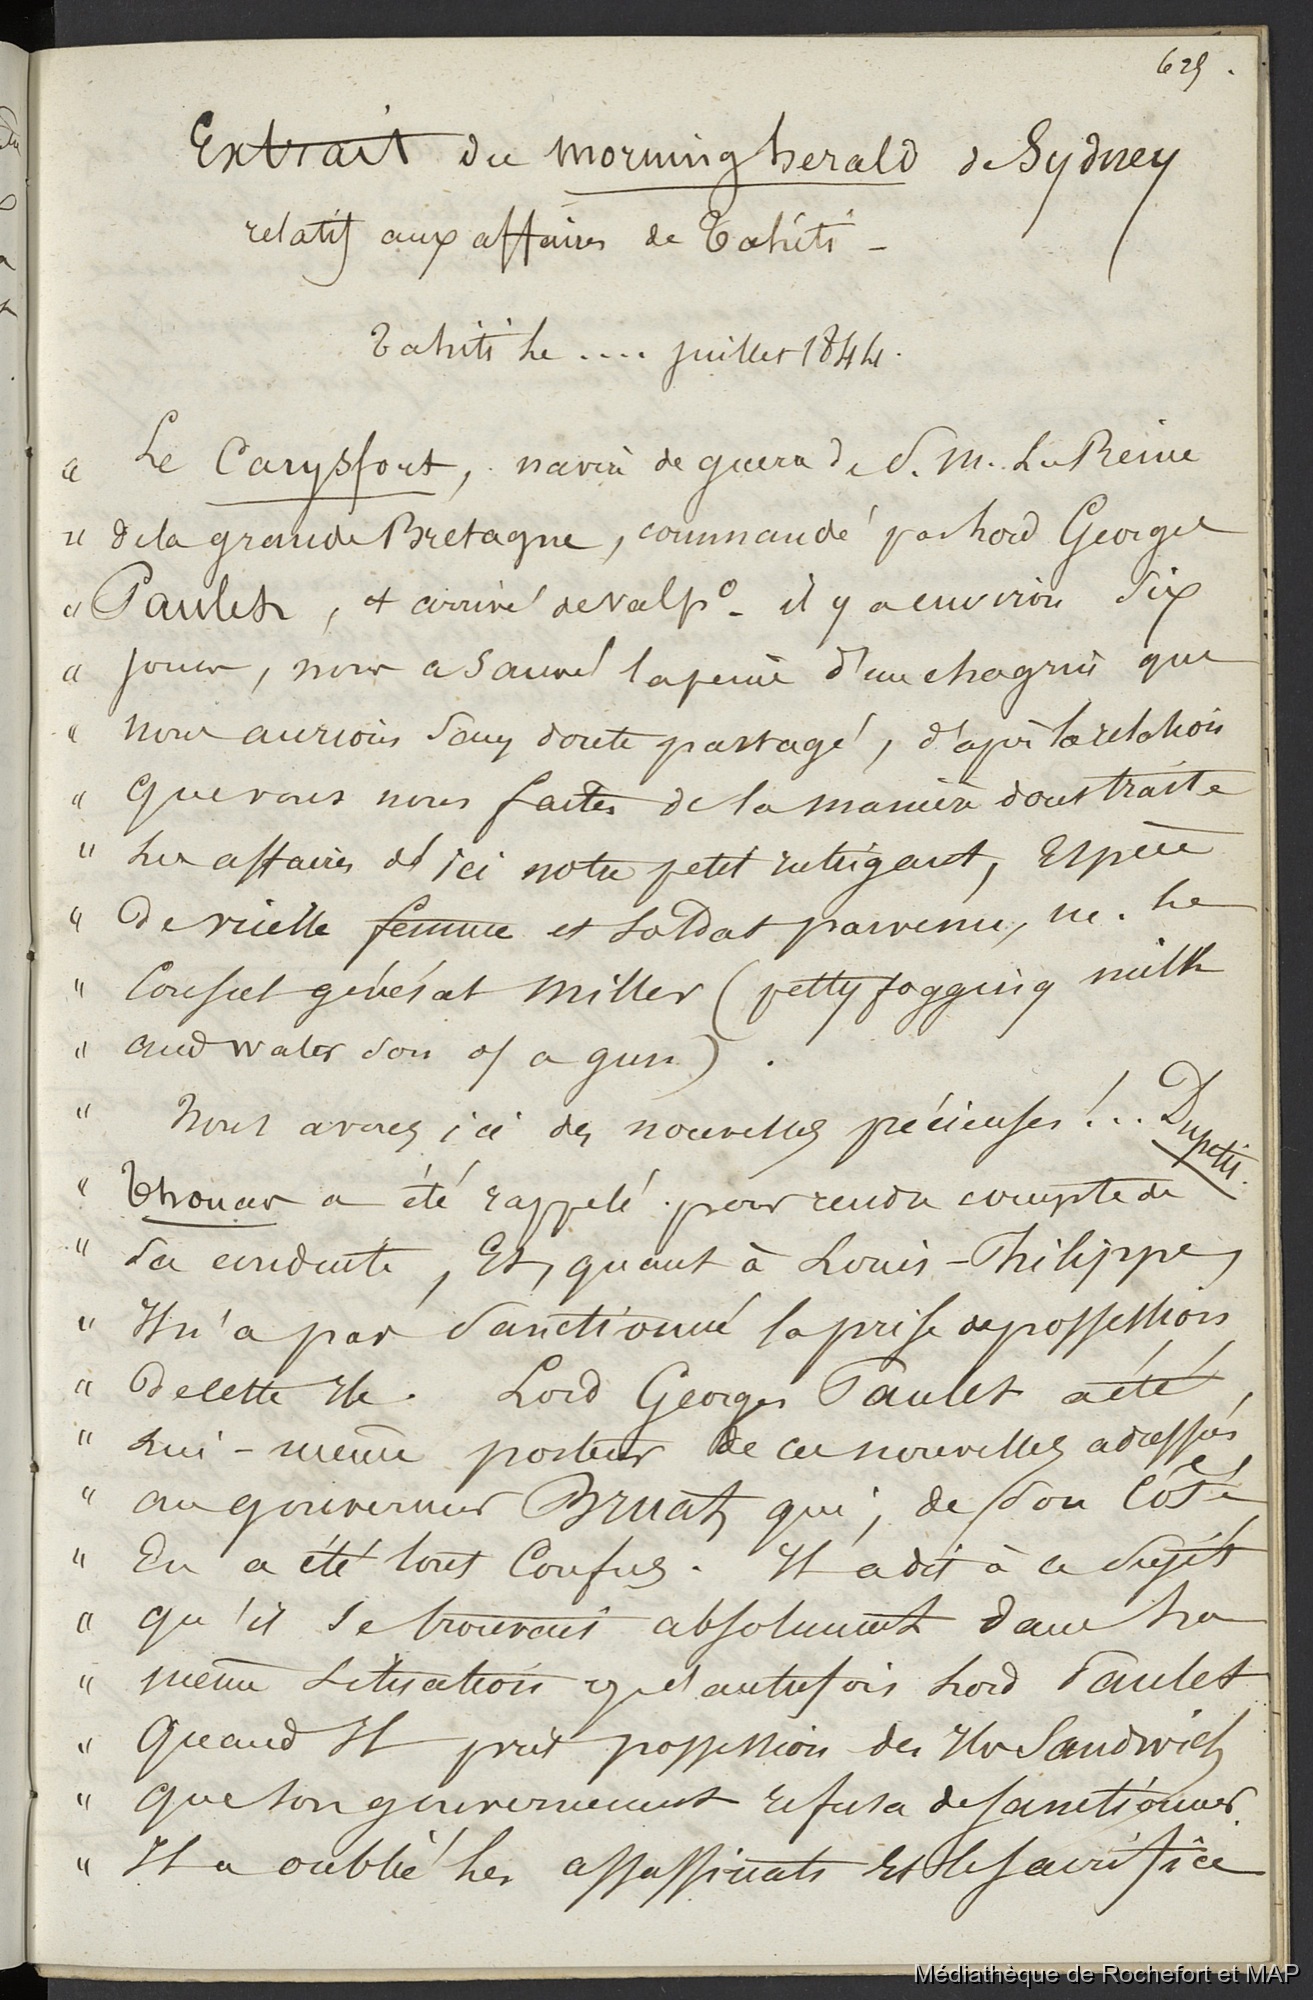 629.
Extrait du morning herald de Sydney
relatif aux affaires de Tahiti -
Tahiti le .... juillet 1844.
" Le Carysfort, navire de guerre de S. M. La Reine
" de la grande Bretagne, commandé par Lord Georges
" Paulet, et arrivé de Valpo - il y a environ dix
" jours, nous a sauvé la peine d'un chagrin que
" nous aurions sans doute partagé, d'après la relation
" que vous nous faites de la manière dont traite
" les affaires d'ici notre petit intrigant, Espèce
" De vieille femme et soldat parvenu, m. le
" Consul général Miller (pettyfogging milk
" and water son of a gun).
" Nous avons ici des nouvelles précieuses!.. Dupetit.
" Thouars a été rappelé pour rendre compte de
" Sa conduite, Et, quant à Louis-Philippe,
" Il n'a pas Sanctionné la prise de possession
" De cette Ile. Lord Georges Paulet a été,
" Lui-même porteur de ces nouvelles adressées
" au gouverneur Bruat, qui, de son Côté
" En a été tout Confus. Il a dit à ce Sujet
" qu'il se trouvait absolument dans la
" même situation qu'autrefois Lord Paulet
" Quand Il prit possession des Iles Sandwich
" que son gouvernement refusa de sanctionner.
" Il a oublié les assassinats Et le sacrifice
Médiathèque de Rochefort et MAP